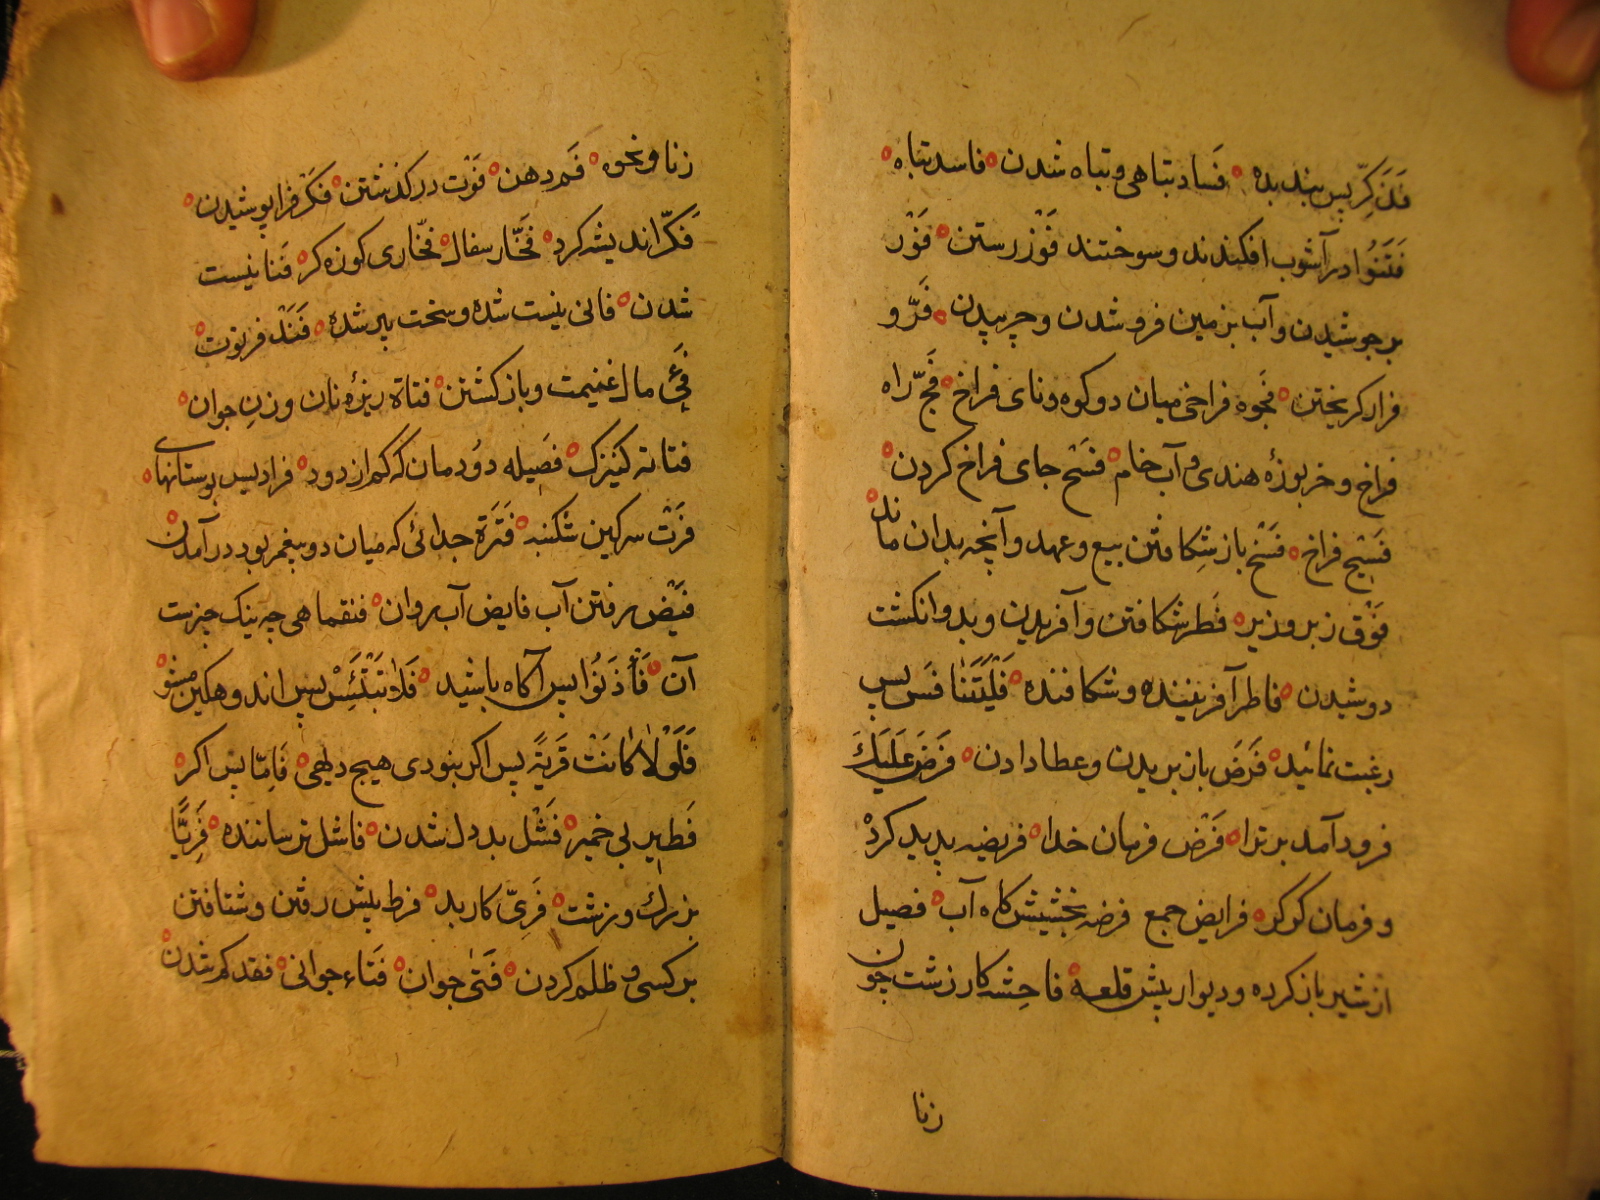 فَذَکِّر پس پند بده فَساد تباهی و تباه شدن فاسد تباه
فَتَنُوا در آشوب افکندند و سوختند فَوْز رستن فَوْر
بر جوشیدن و آب بزمین فرو شدن و چربیدن فَرّ و
فرار کریختن فَجْوه فراخی میان دو کوه و نای فراخ فَجّ راه
فراخ و خربوزهٔ هندی و آب خام فَسْح جای فراخ کردن
فَسِیح فراخ فَسْخ باز شکافتن بیع و عهد و آنچه بدان ماند
فَوْق زبر و زیر فَطر شکافتن و آفریدن و بدو انکشت
دوشیدن فاطر آفریننده و شکافنده پس
رغبت نمائید فَرَض باز بریدن و عطا دادن فَرَضَ عَلَیْکَ
فرود آمد بر ترا فَرْض فرمان خدا فریضه پدید کردْ
و فرمان فرایض جمع فرضه بخشیش کاه آب فصیل
از شیر باز کرده و دیوار پیش قلعه فاحشه کار زشت چون
زنا
زنا و نحوه فَم دهن فَوْت در کذشتن فکر فرا پوشیدن
فَکّر اندیشه کرد فَخّار سفال فخّاری کوزه کر فَنا نیست
شدن فانی نیست شده و سخت پیر شده فَنَدْ فرتوت
فَیْء مال غنیمت و باز کشتن فتاة ریزهٔ نان و زن جوان
فتاته کنیزک فَصِیله دودمان که کم از دود فرادیس بوستانهای
فَرْث سرکین شکنبه فَتْرَة جدائی که میان دو پیغمبر بود در آمدن
فَیْض رفتن آب فایض آب روان فنعما هی چه نیک چیزست
آن فَأْذَنُوا پس آکاه باشید فَلا تَبْتَئِسْ پس اندوهکین مشو
فَلَوْلا کانَتْ قَرْیَةً پس اکر نبودی هیچ دیهی فَاِمّا پس اکر
فَطِیر بی خمیر فَشْل بددل شدن فاشل ترساننده فَرِیًّا
بزرك و زشت فَرِیّ کار بد فرط پیش رفتن و شتافتن
بر کسی و ظلم کردن فَتٰی جوان فَتاء جوانی فقد کم شدن